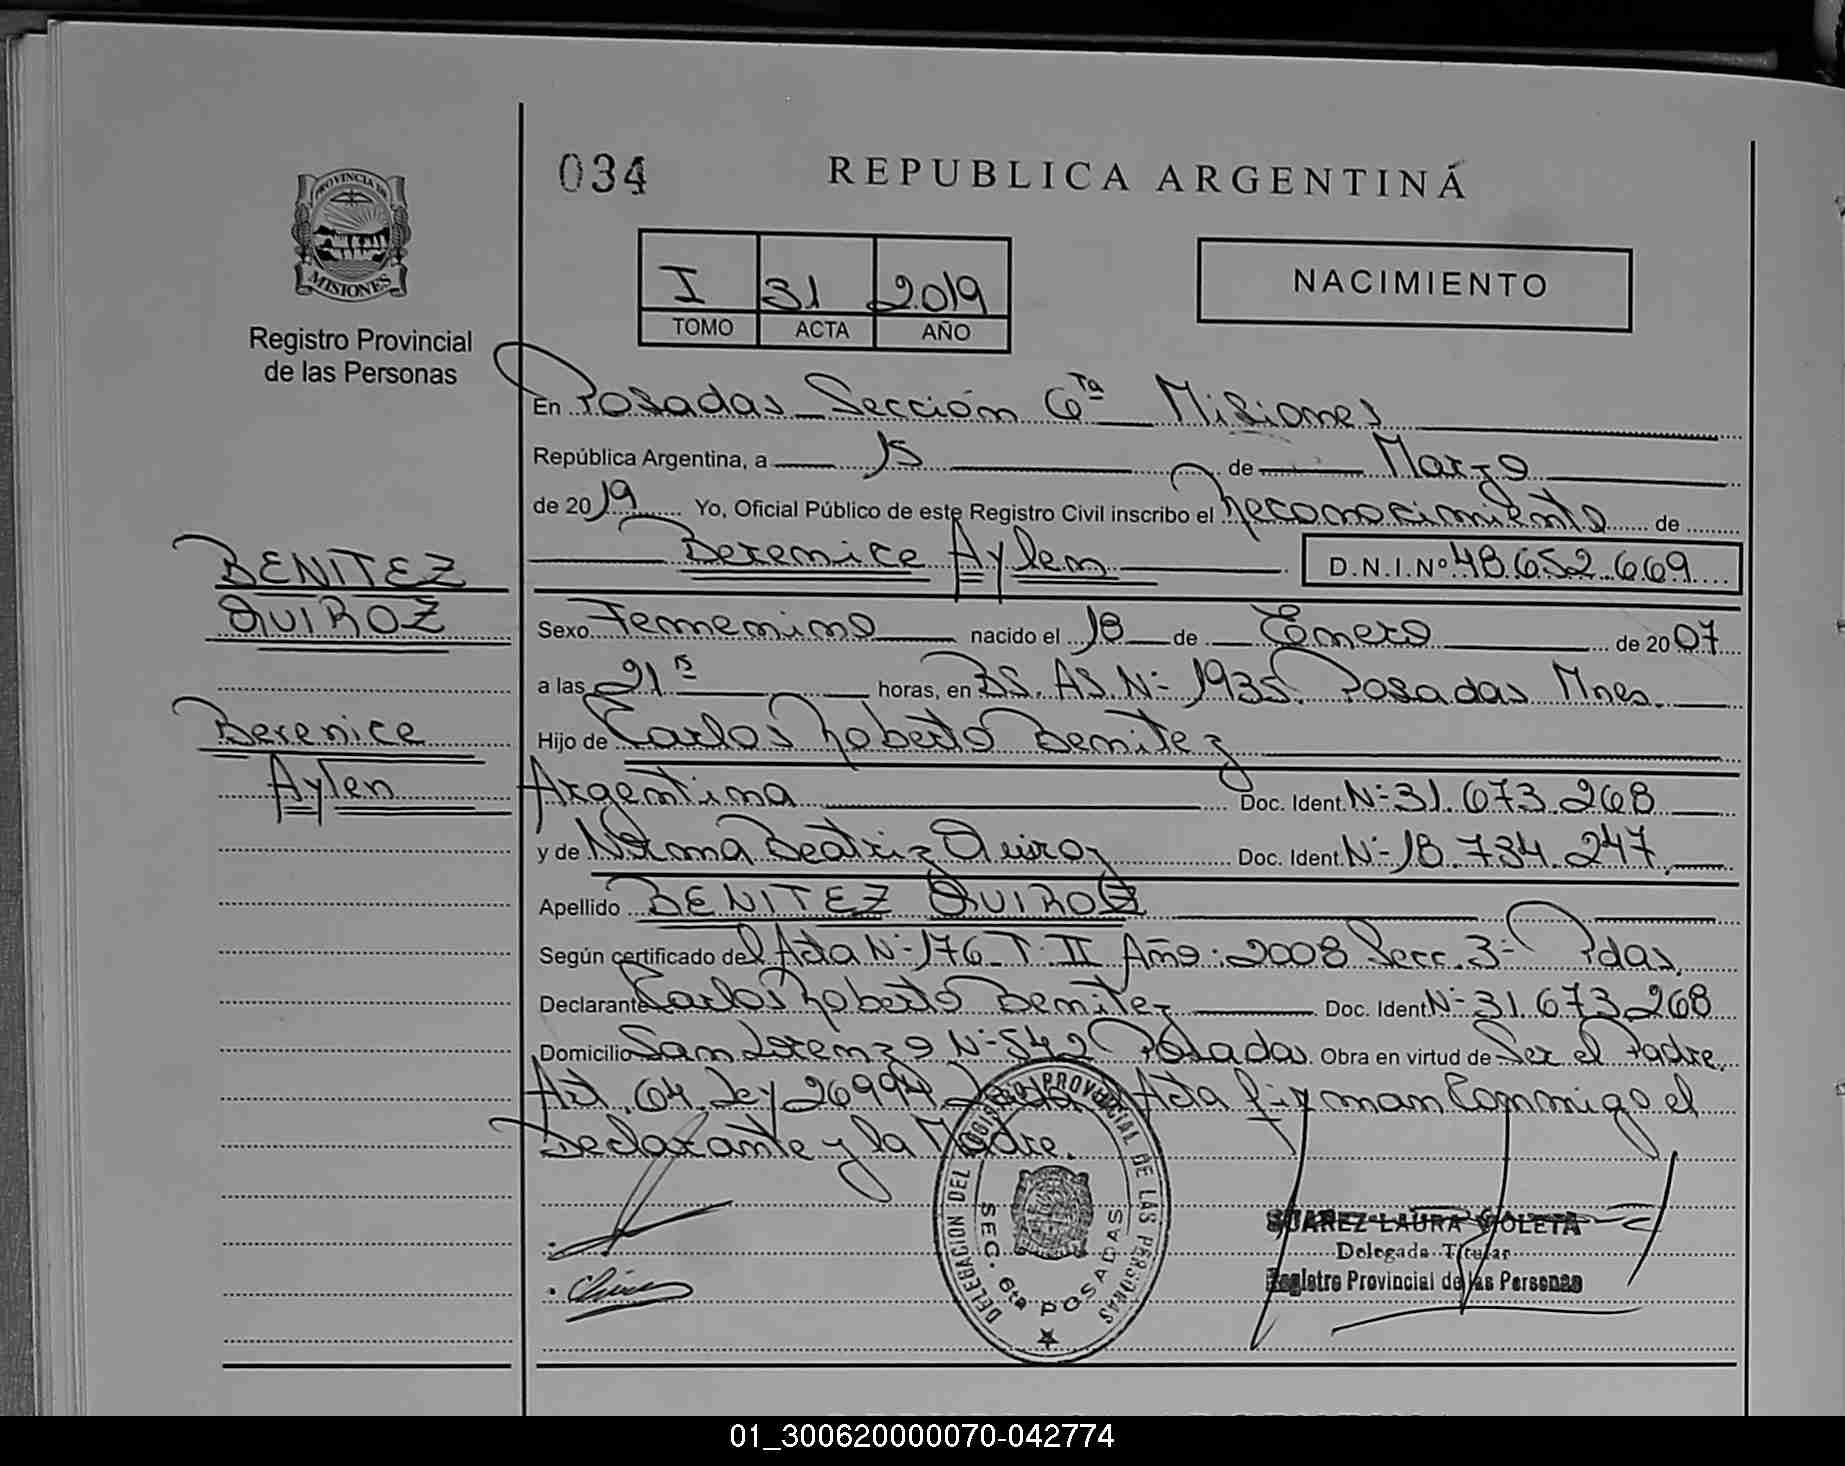 034
REPUBLICA ARGENTINÁ
PROVINCIA DE
MISIONES
Registro Provincial
de las Personas
I 31 2019
TOMO ACTA AÑO
NACIMIENTO
En Posadas Sección 6ta Misiones
República Argentina, a 15 de Marzo
de 2019 Yo, Oficial Público de este Registro Civil inscribo el Reconocimiento de
Berenice Aylen D.N.I.Nº 48.652.669
BENITEZ
QUIROZ
Berenice
Aylen
Sexo Femenino nacido el 18 de Enero de 2007
a las 21 hs horas, en BS. AS. Nº 1935 Posadas Mnes.
Hijo de Carlos Roberto Benitez
Argentina Doc. Ident. Nº 31.673.268
y de Norma Beatriz Quiroz Doc. Ident. Nº 18.734.247
Apellido BENITEZ QUIROZ
Según certificado del Acta Nº 176 T: II Año: 2008 Secc. 3º Pdas,
Declarante Carlos Roberto Benitez Doc. Ident Nº 31.673.268
Domicilio San Lorenzo Nº 542 Posadas. Obra en virtud de Ser el Padre.
Art. 64 Ley 26994 Acta firman Conmigo el
Declarante y la Madre.
DELEGACION DEL REGISTRO PROVINCIAL DE LAS PERSONAS
SEC. 6ta POSADAS
SUAREZ LAURA VIOLETA
Delegada Titular
Registro Provincial de las Personas
01_300620000070-042774